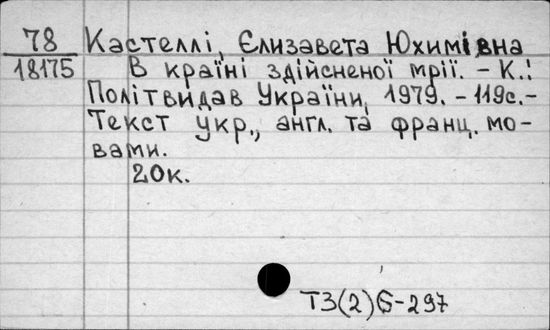 78 Кастеллі, Єлизавета Юхимівна
18175 В країні здійсненої мрії. - К.:
Політвидав України, 1979. - 119с.-
Текст укр., англ. та франц. мо-
вами.
20к.
Т3(2)6-297